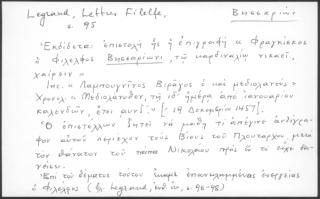 Legrand, Lettres Filelfe, Βησσαρίων
σ. 95
Ἐκδίδεται ἐπιστολὴ ἧς ἡ ἐπιγραφή « Φραγκίσκος
ὁ Φιλέλφος Βησσαρίωνι, τῷ καρδιναλίῳ νικαεῖ,
χαίρειν »
« Λαμπουγνῖνος Βιράγος ὁ καὶ μεδιολανεὺς »
Χρονολ. « Μεδιολάνοθεν, τῇ ιδ' ἡμέρᾳ ἀπὸ ἰανουαρίου
καλενδῶν, ἔτει αυνζ' » [= 19 Δεκεμβρίου 1457].
Ὁ ἐπιστέλλων ζητεῖ νὰ μάθῃ τί ἀπέγινε ἀντίγρα-
φον αὐτοῦ περιέχον τοὺς Βίους τοῦ Πλουτάρχου μετὰ
τὸν θάνατον τοῦ πάπα Νικολάου πρὸς ὃν τὸ εἶχε δα-
νείσει.
Ἐπὶ τοῦ θέματος τούτου ἔκαμε ἐπανειλημμένας ἐνεργείας
ὁ Φιλέλφος (βλ. Legrand, ἔνθ. ἀν., σ. 96-98)